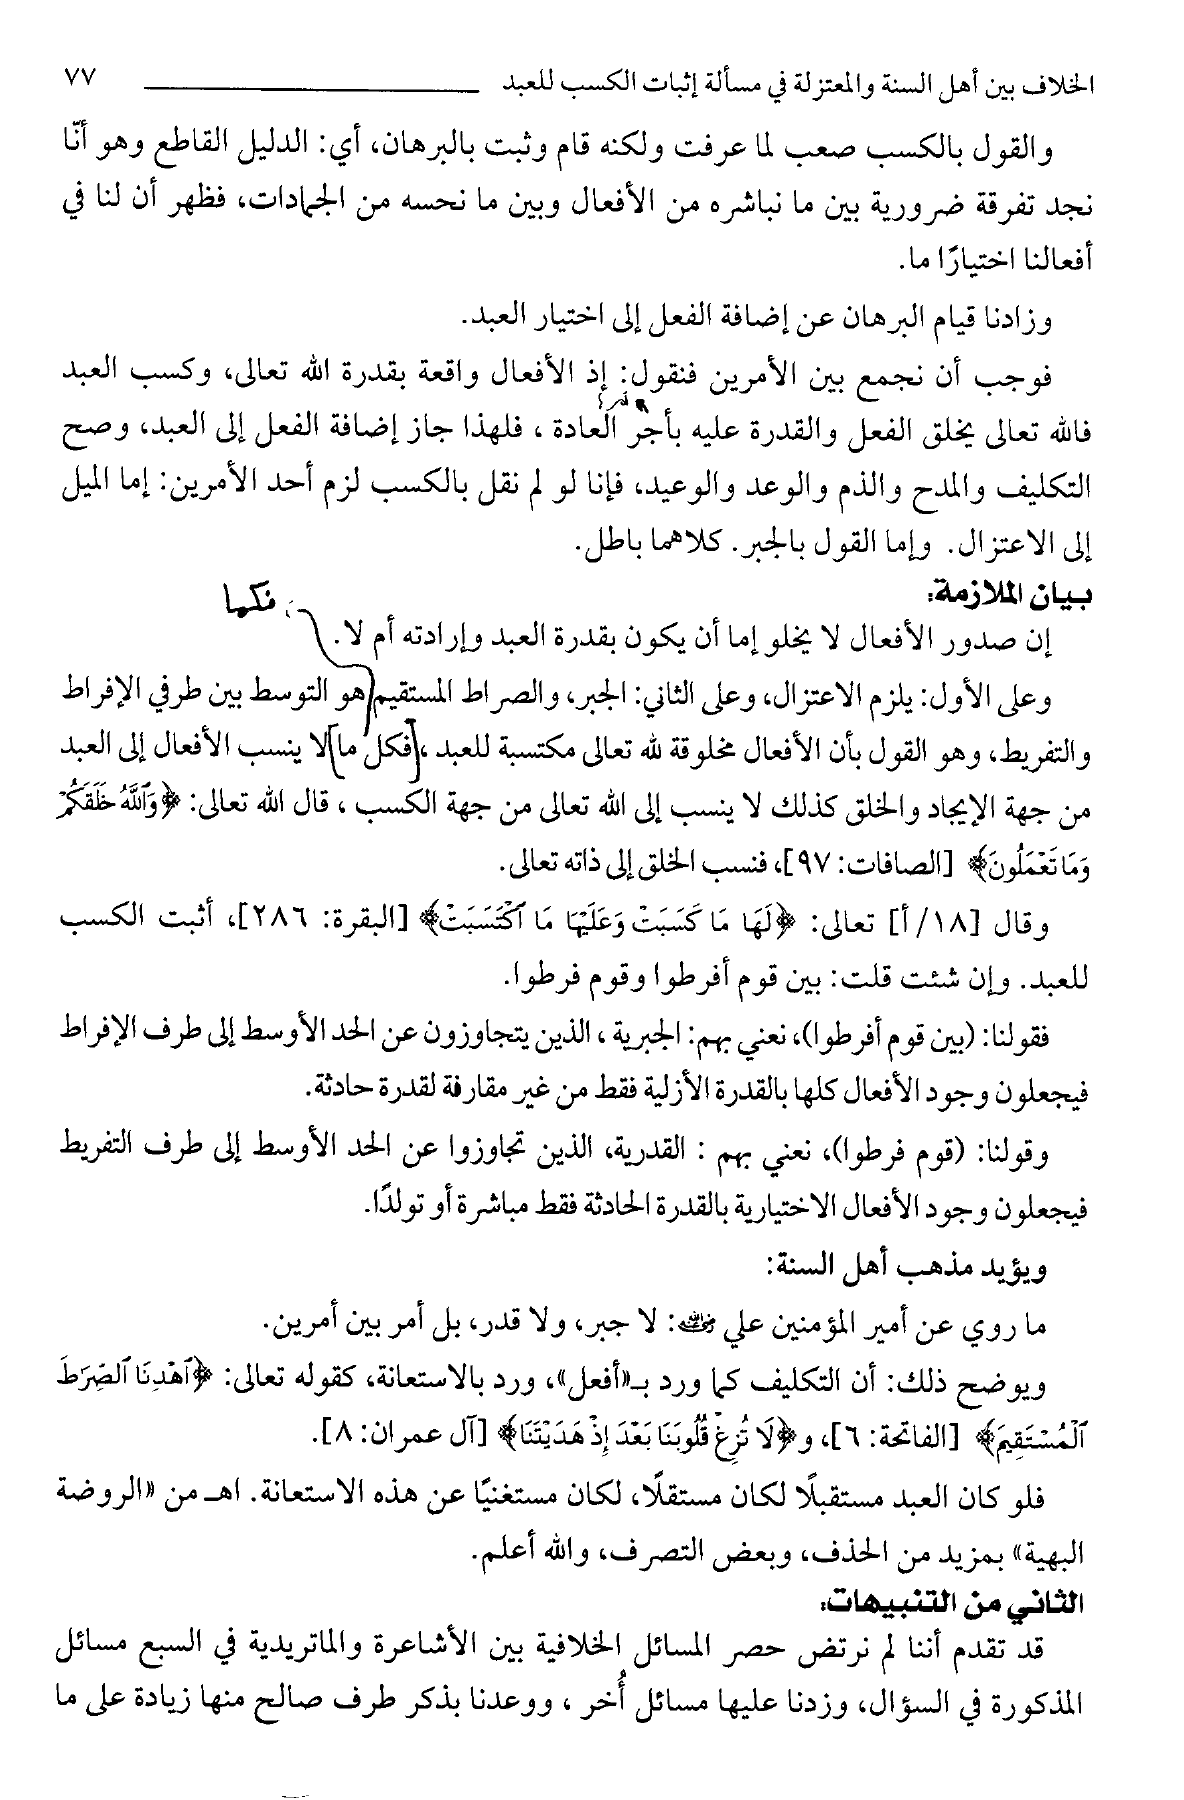 الخلاف بين أهل السنة والمعتزلة في مسألة إثبات الكسب للعبد ٧٧
والقول بالكسب صعب لما عرفت ولكنه قام وثبت بالبرهان، أي: الدليل القاطع وهو أنّا
نجد تفرقة ضرورية بين ما نباشره من الأفعال وبين ما نحسه من الجمادات، فظهر أن لنا في
أفعالنا اختيارًا ما.
وزادنا قيام البرهان عن إضافة الفعل إلى اختيار العبد.
فوجب أن نجمع بين الأمرين فنقول: إذ الأفعال واقعة بقدرة الله تعالى، وكسب العبد
فالله تعالى يخلق الفعل والقدرة عليه بأجر العادة ، فلهذا جاز إضافة الفعل إلى العبد، وصح
التكليف والمدح والذم والوعد والوعيد، فإنا لو لم نقل بالكسب لزم أحد الأمرين: إما الميل
إلى الاعتزال. وإما القول بالجبر. كلاهما باطل.
بيان الملازمة:
فكما
إن صدور الأفعال لا يخلو إما أن يكون بقدرة العبد وإرادته أم لا.
وعلى الأول: يلزم الاعتزال، وعلى الثاني: الجبر، والصراط المستقيم هو التوسط بين طرفي الإفراط
والتفريط، وهو القول بأن الأفعال مخلوقة لله تعالى مكتسبة للعبد ، [فكل ما] لا ينسب الأفعال إلى العبد
من جهة الإيجاد والخلق كذلك لا ينسب إلى الله تعالى من جهة الكسب ، قال الله تعالى: ﴿وَٱللَّهُ خَلَقَكُمْ
وَمَا تَعْمَلُونَ﴾ [الصافات: ٩٧]، فنسب الخلق إلى ذاته تعالى.
وقال [١٨/ أ] تعالى: ﴿لَهَا مَا كَسَبَتْ وَعَلَيْهَا مَا ٱكْتَسَبَتْ﴾ [البقرة: ٢٨٦]، أثبت الكسب
للعبد. وإن شئت قلت: بين قوم أفرطوا وقوم فرطوا.
فقولنا: (بين قوم أفرطوا)، نعني بهم: الجبرية ، الذين يتجاوزون عن الحد الأوسط إلى طرف الإفراط
فيجعلون وجود الأفعال كلها بالقدرة الأزلية فقط من غير مقارفة لقدرة حادثة.
وقولنا: (قوم فرطوا)، نعني بهم : القدرية، الذين تجاوزوا عن الحد الأوسط إلى طرف التفريط
فيجعلون وجود الأفعال الاختيارية بالقدرة الحادثة فقط مباشرة أو تولدًا.
ويؤيد مذهب أهل السنة:
ما روي عن أمير المؤمنين علي رضي الله عنه: لا جبر، ولا قدر، بل أمر بين أمرين.
ويوضح ذلك: أن التكليف كما ورد بـ«أفعل»، ورد بالاستعانة، كقوله تعالى: ﴿ٱهْدِنَا ٱلصِّرَٰطَ
ٱلْمُسْتَقِيمَ﴾ [الفاتحة: ٦]، و﴿لَا تُزِغْ قُلُوبَنَا بَعْدَ إِذْ هَدَيْتَنَا﴾ [آل عمران: ٨].
فلو كان العبد مستقبلًا لكان مستقلًا، لكان مستغنيًا عن هذه الاستعانة. اهـ من «الروضة
البهية» بمزيد من الحذف، وبعض التصرف، والله أعلم.
الثاني من التنبيهات:
قد تقدم أننا لم نرتض حصر المسائل الخلافية بين الأشاعرة والماتريدية في السبع مسائل
المذكورة في السؤال، وزدنا عليها مسائل أُخر ، ووعدنا بذكر طرف صالح منها زيادة على ما